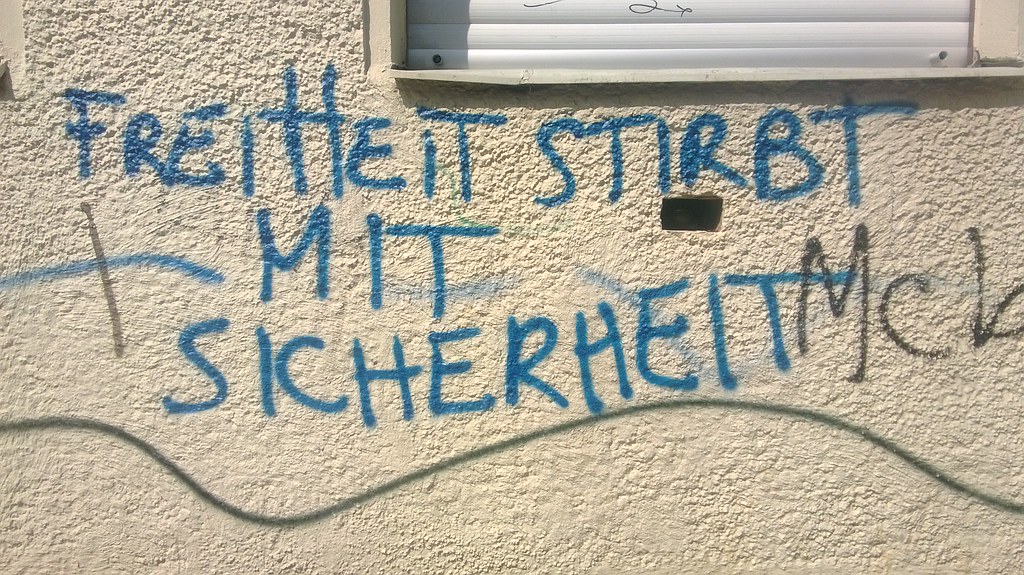 FREIHEIT STIRBT
MIT
SICHERHEIT